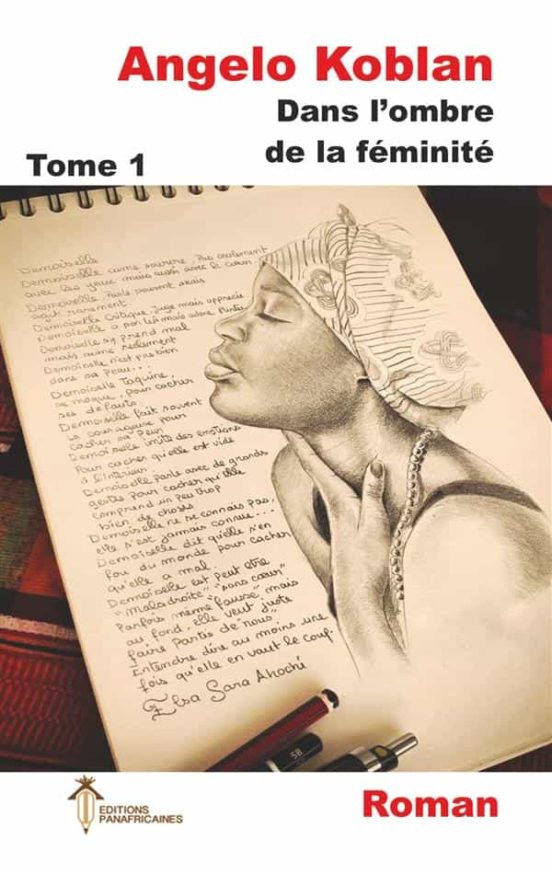 Angelo Koblan
Dans l'ombre
de la féminité
Tome 1
Demoiselle
Demoiselle aime sourire, Pas seulement
avec les yeux mais aussi avec le cœur
Demoiselle, Parle souvent mais
agit rarement
Demoiselle Critique, juge mais apprécie
Demoiselle a son
Demoiselle s'y prend mal
mais aime réellement
Demoiselle n'est pas bien
dans sa peau...
Demoiselle Taquine,
se moque, pour cacher
ses défauts
Demoiselle fait souvent
la courageuse pour
cacher sa peur
Demoiselle invite des émotions
Pour cacher qu'elle est vide
à l'intérieur
Demoiselle parle avec de grands
gestes Pour cacher qu'elle
comprend un peu trop
bien de choses
Demoiselle ne se connais pas,
elle s'est jamais connue...
Demoiselle dit qu'elle s'en
fou du monde pour cacher
qu'elle a mal.
Demoiselle est peut être
"Maladroite" "sans cœur"
Parfois même "fausse" mais
au fond, elle veut juste
faire partie de "nous"
Entendre dire au moins une
fois qu'elle en vaut le coup.
Elsa Sara Ahochi
5B
EDITIONS
PANAFRICAINES
Roman